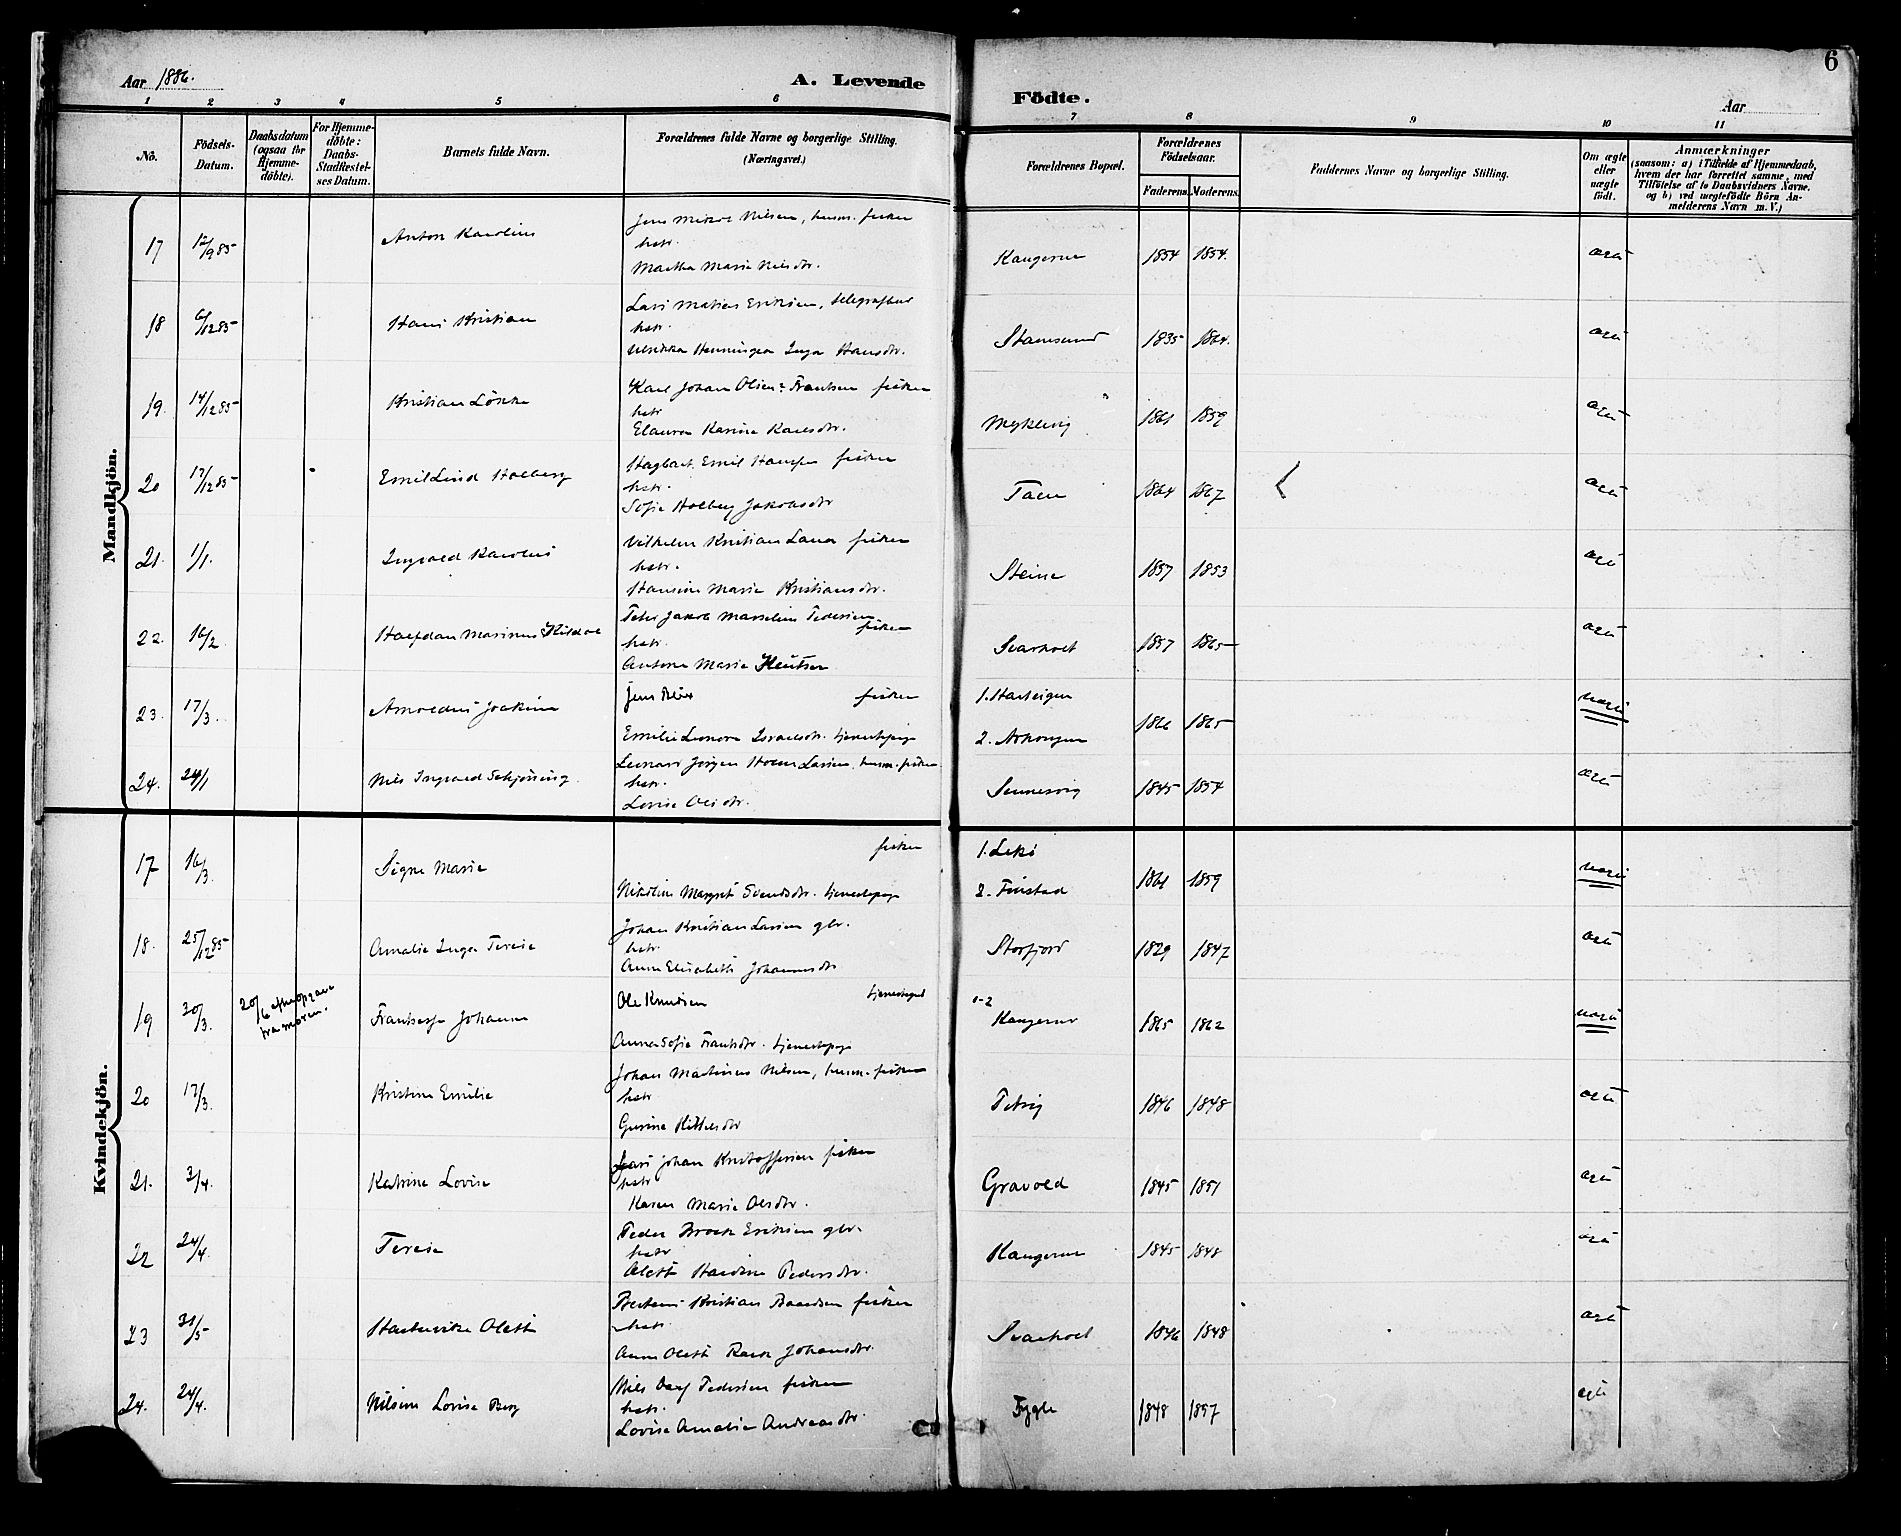 Aar 1886.
A. Levende
Födte.
Aar
6
1 2 3 4 5 6 7 8 9 10 11
No.
Födsels-Datum.
Daabsdatum (ogsaa for Hjemme-döbte).
For Hjemme-döbte: Daabs-Stadfæstel-ses Datum.
Barnets fulde Navn.
Forældrenes fulde Navne og borgerlige Stilling. (Næringsvei.)
Forældrenes Bopæl.
Forældrenes Födselsaar.
Faderens. Moderens.
Faddernes Navne og borgerlige Stilling.
Om ægte eller uægte födt.
Anmærkninger
(saasom: a) i Tilfælde af Hjemmedaab,
hvem der har forrettet samme, med
Tilföielse af to Daabsvidners Navne.
og b) ved uægtefödte Börn An-
melderens Navn m. V.)
Mandkjön.
17 12/9 85 Anton Karolius
Jens Mikal Nilsen, husm. fisker
hstr.
Martha Marie Nilsdtr.
Kangerur 1854 1854. ægte
18 6/12 85 Hans Kristian
Lars Matias Eriksen, telegrafbud
hstr.
Henningea Inga Hansdtr.
Stamsund 1835 1864. ægte
19. 14/12 85 Kristian Lökke
Karl Johan Olsen Frantsen fisker
hstr
Elaura Karine Karlsdtr.
Myklevig 1861 1859 ægte
20 17/12 85 Emil Lind Holberg
Hagbart Emil Hansen fisker
hstr.
Sofie Holberg Jakobsdtr
Taen 1864 1867 ægte
21. 1/1. Ingvald Karolius
Vilhelm Kristian Lana fisker
hstr.
Hansine Marie Kristiansdtr.
Steine 1857 1853 ægte
22. 16/2 Halfdan Marinus Hildal
Peter Jakob Marselius Pedersen
fisker
hstr.
Antona Marie Knutsen
Svarholt 1857 1865 ægte
23. 17/3. Arnoldus Joakim
Jens fisker
Emilie Leonora Israelsdtr. tjenestepige
1. Hartvigen
2. 1866 1865 uægte
24. 24/1 Nils Ingvald Schjöning
Leonard Jörgen Holm Larsen, husm. fisker
hstr.
Lovise Olsdtr.
Sennesvig 1845 1854 ægte
Kvindekjön.
17 16/3. Signe Marie
fisker
Nikoline Margret Svendsdtr. tjenestepige
1. Lekö
2. Finstad 1861 1859 uægte
18. 25/12 85 Amalie Inga Terese
Johan Kristian Larsen gbr.
hstr.
Anne Elisabeth Johannesdtr
Storfjord 1829 1847 ægte
19 30/3. 20/6 efter opgave fra moren. Frantseska Johanna
Ole Knudsen tjenestegut
Anna Sofie Frantsdtr. tjenestepige
1-2
Kangerur 1865 1862 uægte
20 17/3. Kristine Emilie
Johan Martinus Nilsen, husm. fisker
hstr.
Gurine Kittelsdtr
Petvig 1846 1848 ægte
21. 3/4. Katrine Lovise
Lars Johan Kristoffersen fisker
hstr
Karen Marie Olsdtr.
Gravold 1845 1851 ægte
22 24/4. Terese
Peder Brock Eriksen gbr.
hstr
Olette Hardine Pedersdtr.
Kangerur 1845 1848 ægte
23 31/5 Hartvikke Olette
Berteus Kristian Baardsen fisker
hstr.
Anne Olette Rask Johansdtr.
Svarholt 1846 1848 ægte
24. 24/4. Nilsine Lovise Berg
Nils Olaf Pedersen fisker
hstr.
Lovise Amalie Andreasdtr.
Fygle 1848 1857 ægte